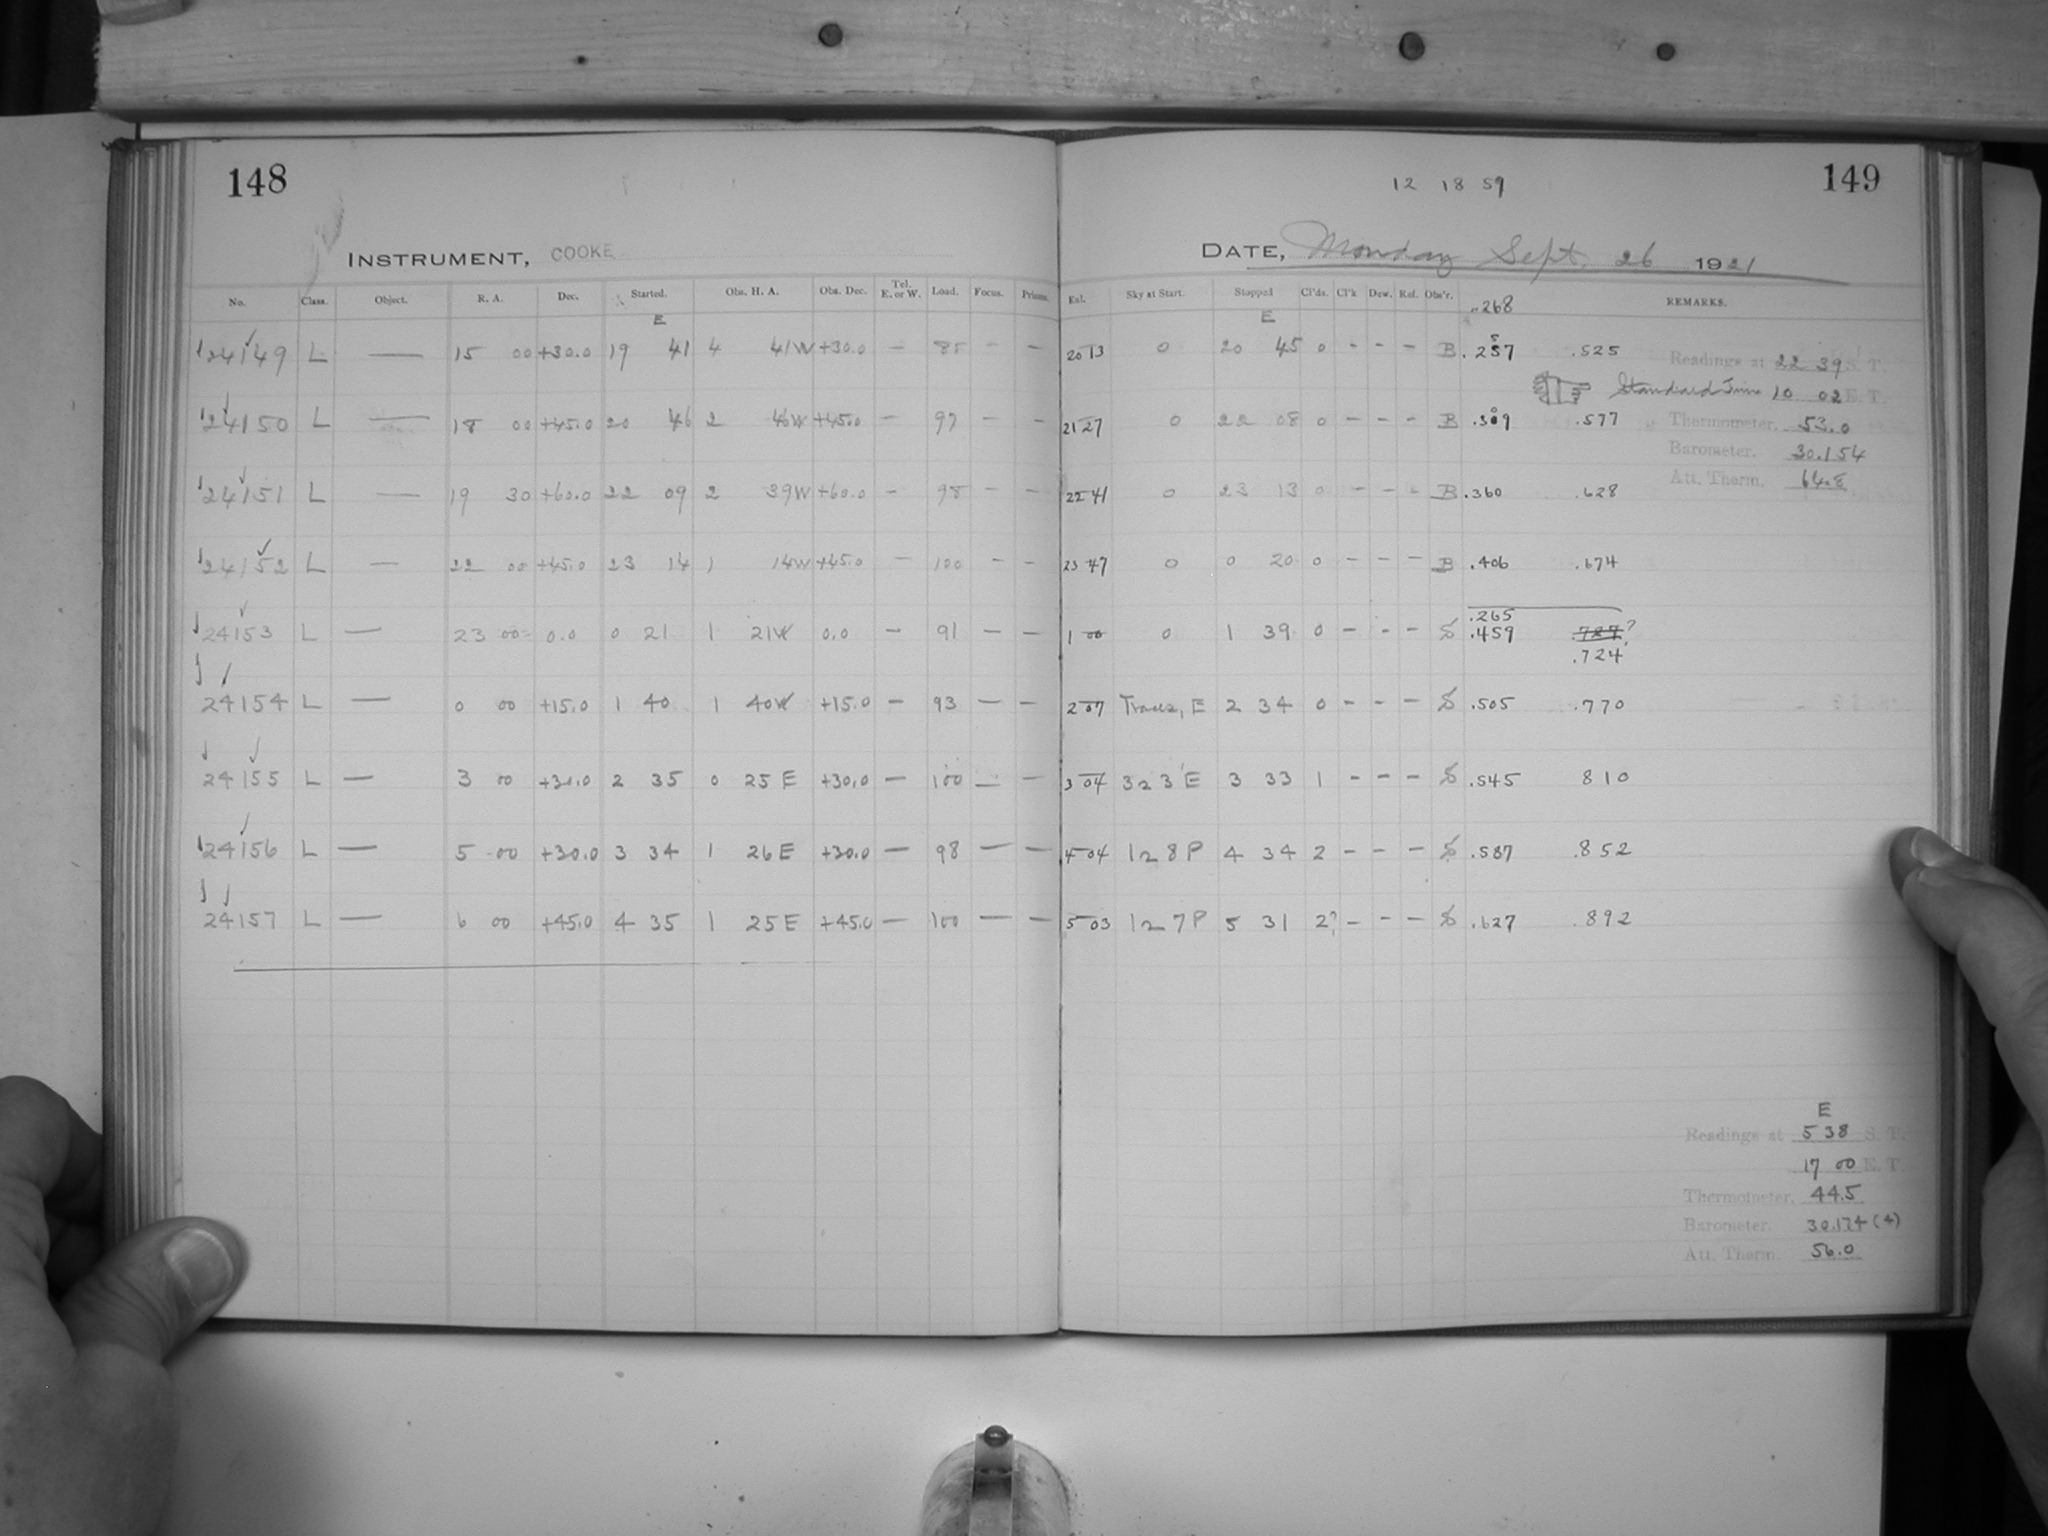 148
12 18 59
149
INSTRUMENT, COOKE
DATE, Monday Sept. 26 1921
No. Class. Object. R. A. Dec. Started. Obs. H. A. Obs. Dec. Tel. E. or W. Load. Focus. Prisms. Exl. Sky at Start. Stopped Cl'ds. Cl'k Dew. Ref. Obs'r. .268 REMARKS.
E E
24149 L — 15 00 +30.0 19 41 4 41W +30.0 — 85 — — 20 13 0 20 45 0 - - - B .257 .525
Readings at 22 39 S. T.
Standard Time 10 02 E. T.
24150 L — 18 00 +45.0 20 46 2 46W +45.0 — 97 — — 21 27 0 22 08 0 - - - B .309 .577
Thermometer. 53.0
Barometer. 30.154
Att. Therm. 64.8
24151 L — 19 30 +60.0 22 09 2 39W +60.0 — 98 — — 22 41 0 23 13 0 - - - B .360 .628
24152 L — 22 00 +45.0 23 14 1 14W +45.0 — 100 — — 23 47 0 0 20 0 - - - B .406 .674
.265
24153 L — 23 00 0.0 0 21 1 21W 0.0 — 91 — — 1 00 0 1 39 0 - - - S .459 .727?
.724
24154 L — 0 00 +15.0 1 40 1 40W +15.0 — 93 — — 2 07 Traces, E 2 34 0 - - - S .505 .770
24155 L — 3 00 +30.0 2 35 0 25 E +30.0 — 100 — — 3 04 323 E 3 33 1 - - - S .545 810
24156 L — 5 00 +30.0 3 34 1 26 E +30.0 — 98 — — 4 04 128 P 4 34 2 - - - S .587 .852
24157 L — 6 00 +45.0 4 35 1 25 E +45.0 — 100 — — 5 03 127 P 5 31 2? - - - S .627 .892
E
Readings at 5 38 S. T.
17 00 E. T.
Thermometer. 44.5
Barometer. 30.174 (4)
Att. Therm. 56.0